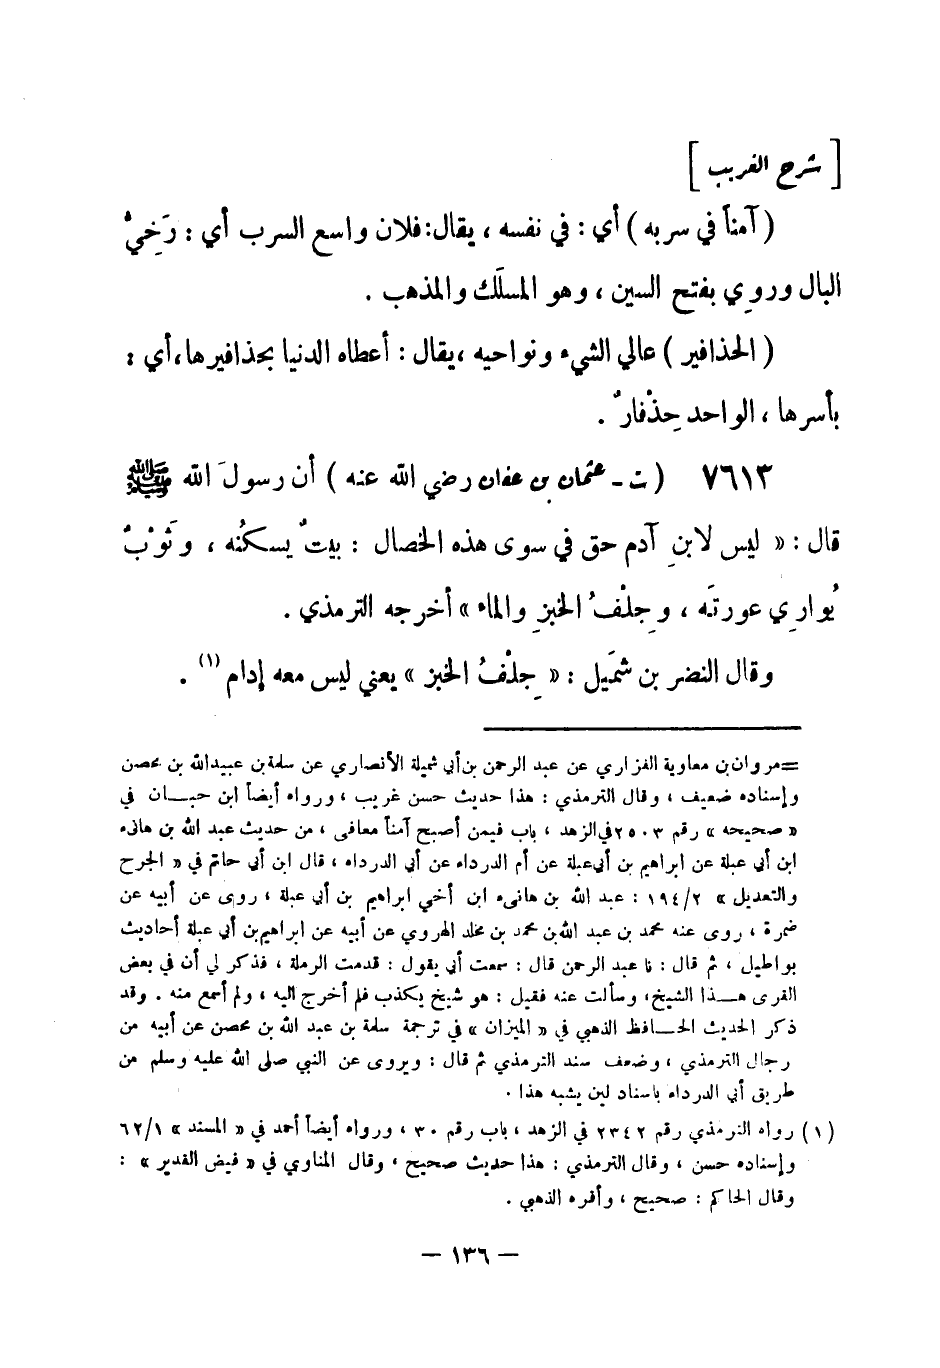 [ شرح الغريب ]
( آمناً في سربه ) أي : في نفسه ، يقال : فلان واسع السرب أي : رَخِيُّ
البال وروِي بفتح السين ، وهو المسلَك والمذهب .
( الحذافير ) عالي الشيء ونواحيه ، يقال : أعطاه الدنيا بحذافيرها ، أي :
بأسرها ، الواحد حِذْفارٌ .
٧٦١٣ ( ت - عثمان بن عفان رضي الله عنه ) أن رسولَ الله ﷺ
قال : « ليس لابنِ آدم حق في سوى هذه الخصال : بيتٌ يسكنُه ، وثَوْبٌ
يُوارِي عورتَه ، وجِلْفُ الخبزِ والماء » أخرجه الترمذي .
وقال النضر بن شُمَيل : « جِلْفُ الخبز » يعني ليس معه إدام (١) .
=مروان بن معاوية الفزاري عن عبد الرحمن بن أبي شميلة الأنصاري عن سلمة بن عبيد الله بن محصن
وإسناده ضعيف ، وقال الترمذي : هذا حديث حسن غريب ، ورواه أيضاً ابن حبـــان في
« صحيحه » رقم ٢٥٠٣ في الزهد ، باب فيمن أصبح آمناً معافى ، من حديث عبد الله بن هانىء
ابن أبي عبلة عن ابراهيم بن أبي عبلة عن أم الدرداء عن أبي الدرداء ، قال ابن أبي حاتم في « الجرح
والتعديل » ١٩٤/٢ : عبد الله بن هانىء ابن أخي ابراهيم بن أبي عبلة ، روى عن أبيه عن
ضمرة ، روى عنه محمد بن عبد الله بن محمد بن مخلد الهروي عن أبيه عن ابراهيم بن أبي عبلة أحاديث
بواطيل ، ثم قال : نا عبد الرحمن قال : سمعت أبي يقول : قدمت الرملة ، فذكر لي أن في بعض
القرى هـــذا الشيخ ، وسألت عنه فقيل : هو شيخ يكذب فلم أخرج اليه ، ولم أسمع منه . وقد
ذكر الحديث الحـــافظ الذهبي في « الميزان » في ترجمة سلمة بن عبد الله بن محصن عن أبيه من
رجال الترمذي ، وضعف سند الترمذي ثم قال : ويروى عن النبي صلى الله عليه وسلم من
طريق أبي الدرداء باسناد لين يشبه هذا .
(١) رواه الترمذي رقم ٢٣٤٢ في الزهد ، باب رقم ٣٠ ، ورواه أيضاً أحمد في « المسند » ٦٢/١
وإسناده حسن ، وقال الترمذي : هذا حديث صحيح ، وقال المناوي في « فيض القدير » :
وقال الحاكم : صحيح ، وأقره الذهبي .
— ١٣٦ —